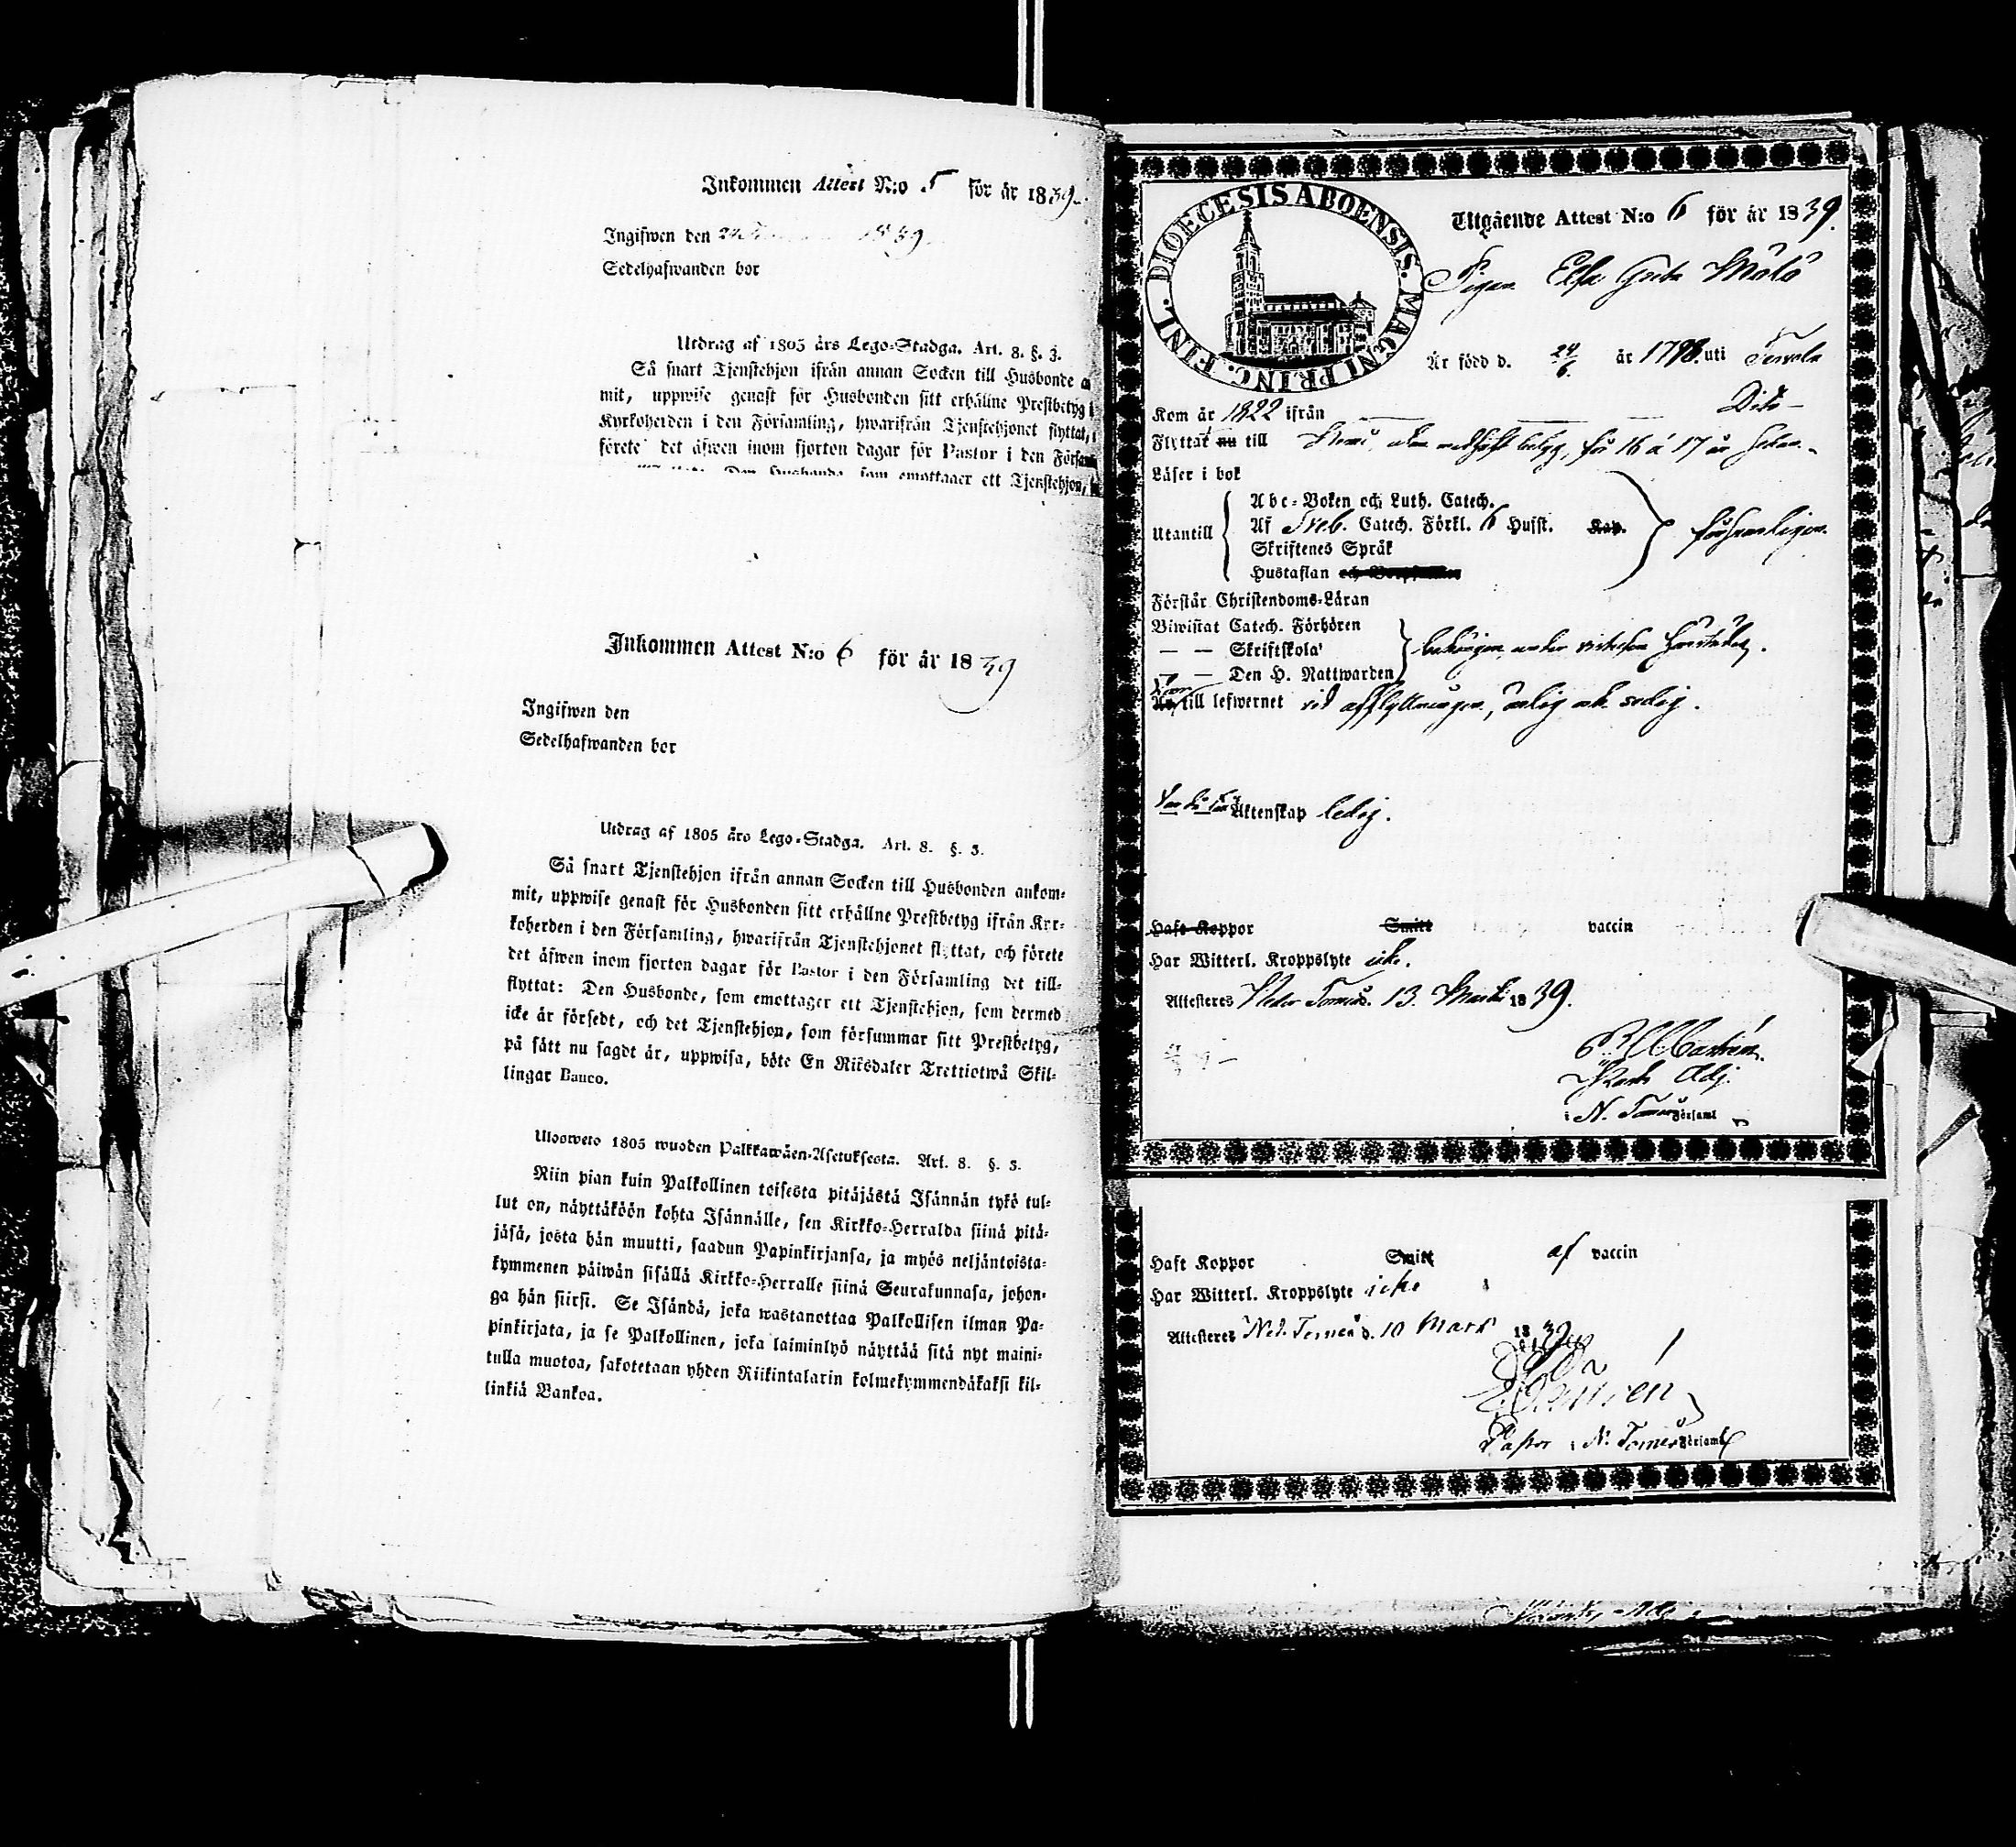 Inkommen Attest N:o 5 för år 1839.
Ingifwen den 1839.
Sedelhafwanden bor
Utdrag af 1805 års Lego-Stadga. Art. 8. §. 3.
Så snart Tjenstehjon ifrån annan Socken till Husbonde
mit, uppwise genast för Husbonden sitt erhållne Prestbetyg
Kyrkoherden i den Församling, hwarifrån Tjenstehjonet flyttat,
förete det äfwen inom fjorton dagar för Pastor i den
Den Husbonde som emottager ett Tjenstehjon,
Inkommen Attest N:o 6 för år 1839
Ingifwen den
Sedelhafwanden bor
Utdrag af 1805 års Lego-Stadga. Art. 8. §. 3.
Så snart Tjenstehjon ifrån annan Socken till Husbonden ankom-
mit, uppwise genast för Husbonden sitt erhållne Prestbetyg ifrån Kyr-
koherden i den Församling, hwarifrån Tjenstehjonet flyttat, och förete
det äfwen inom fjorton dagar för Pastor i den Församling det till-
flyttat: Den Husbonde, som emottager ett Tjenstehjon, som dermed
icke är försedt, och det Tjenstehjon, som försummar sitt Prestbetyg,
på sätt nu sagdt är, uppwisa, böte En Riksdaler Trettiotwå Skil-
lingar Banco.
Ulosweto 1805 wuoden Palkkawäen-Asetuksesta. Art. 8. §. 3.
Niin pian kuin Palkollinen toisesta pitäjästä Isännän tykö tul-
lut on, näyttäköön kohta Isännälle, sen Kirkko-Herralda siinä pitä-
jäsä, josta hän muutti, saadun Papinkirjansa, ja myös neljäntoista-
kymmenen päiwän sisällä Kirkko-Herralle siinä Seurakunnasa, johon-
ga hän siirsi. Se Isändä, joka wastanottaa Palkollisen ilman Pa-
pinkirjata, ja se Palkollinen, joka laiminlyö näyttää sitä nyt maini-
tulla muotoa, sakotetaan yhden Riikintalarin kolmekymmendäkaksi kil-
linkiä Bankoa.
DIOECESIS ABOENSIS. MAGNI PRINC. FINL.
Utgående Attest N:o 6 för år 1839.
Pigan Elsa Greta Mölö
Är född d. 24/6. år 1798. uti Tervola
Kom år 1822 ifrån Dito
Flyttat nu till Kemi, utan medhaft betyg, för 16 à 17 år sedan.
Läser i bok
Utantill
Abc-Boken och Luth. Catech.
Af Sveb. Catech. Förkl. 6 Hufst. Kap.
Skriftenes Språk
Hustaflan
försvarligen.
Förstår Christendoms-Läran
Biwistat Catech. Förhören
— — Skriftskola
— — Den H. Nattwarden
till lefwernet vid afflyttningen, ärlig och sedig.
Äktenskap ledig.
Haft Koppor Smitt vaccin
Har Witterl. Kroppslyte icke.
Attesteras Neder Torneå d. 13. Martii 1839.
Castrén.
Past. Adj.
i N. Torneå Församl
Haft Koppor Smitt af vaccin
Har Witterl. Kroppslyte icke
Attesteras Ned. Torneå d. 10 Mars 1839
Pastor i N. Torneå Församl